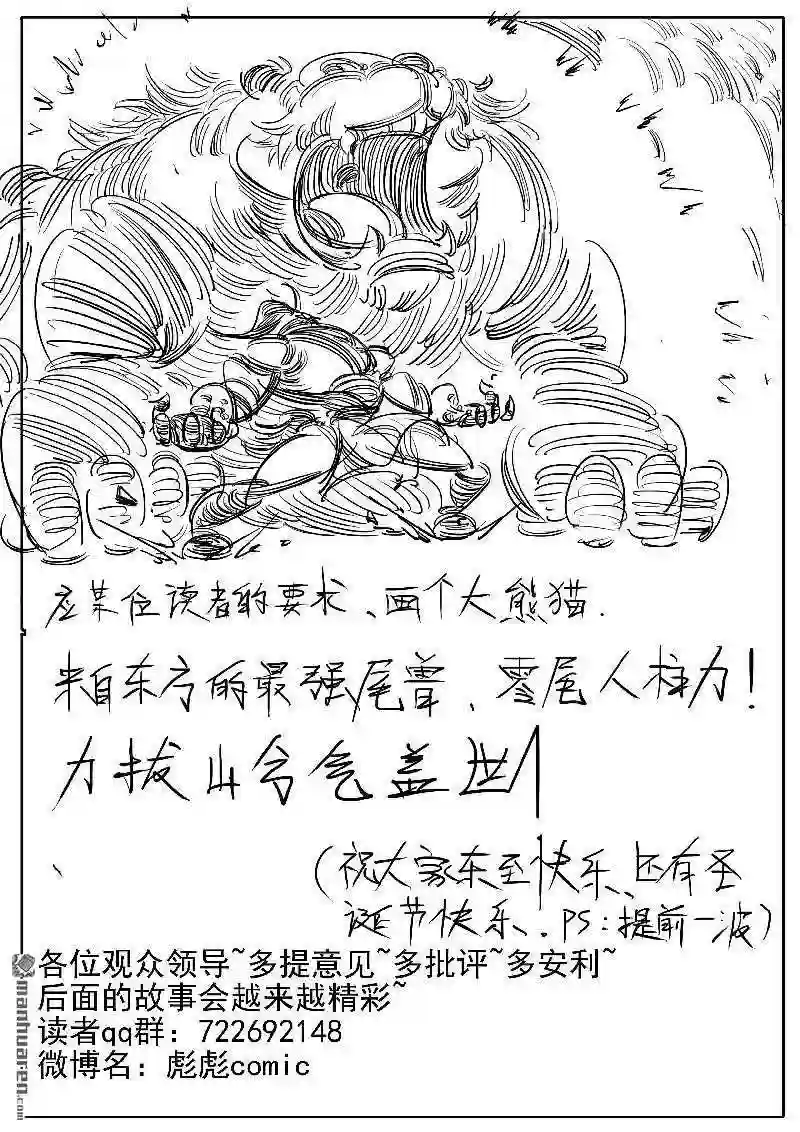 应某位读者的要求、画个大熊猫.
来自东方的最强尾兽、零尾人柱力!
力拔山兮气盖世!
(祝大家冬至快乐、还有圣
诞节快乐、. PS:提前一波)
各位观众领导~多提意见~多批评~多安利~
后面的故事会越来越精彩~
读者qq群: 722692148
微博名: 彪彪comic
manhuaren.com